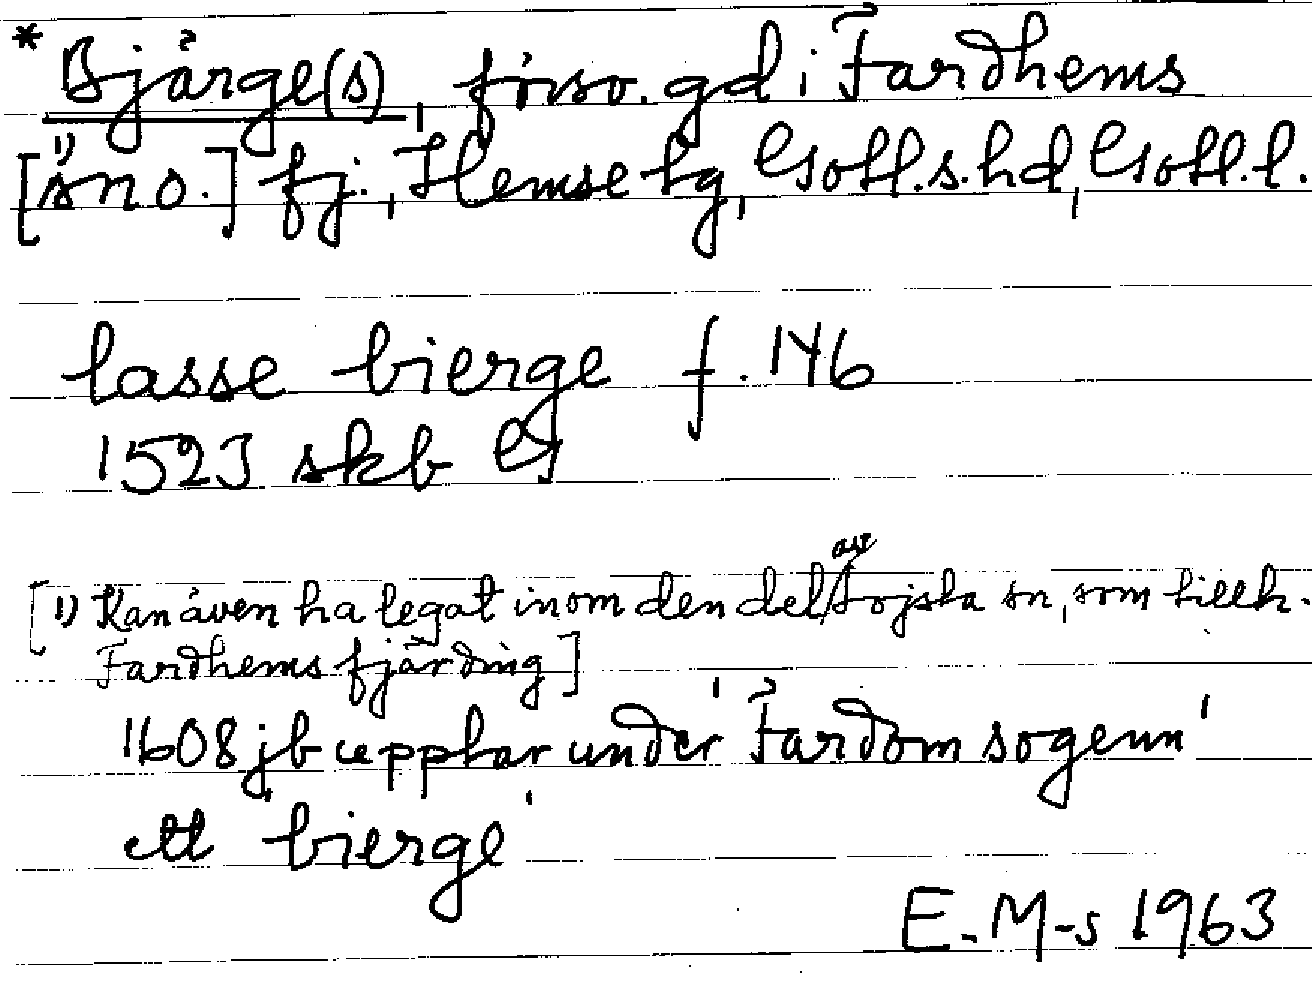 * Bjärge(s), försv. gd i Fardhems
[sn o.]¹⁾ fj., Hemse tg, Gotl.s.hd, Gotl.l.
lasse bierge f. 146
1523 skb G
[1) Kan även ha legat inom den del av Lojsta sn, som tillh.
Fardhems fjärding]
1608 jb upptar under 'Fardom sogenn'
ett 'bierge'
E. M-s 1963